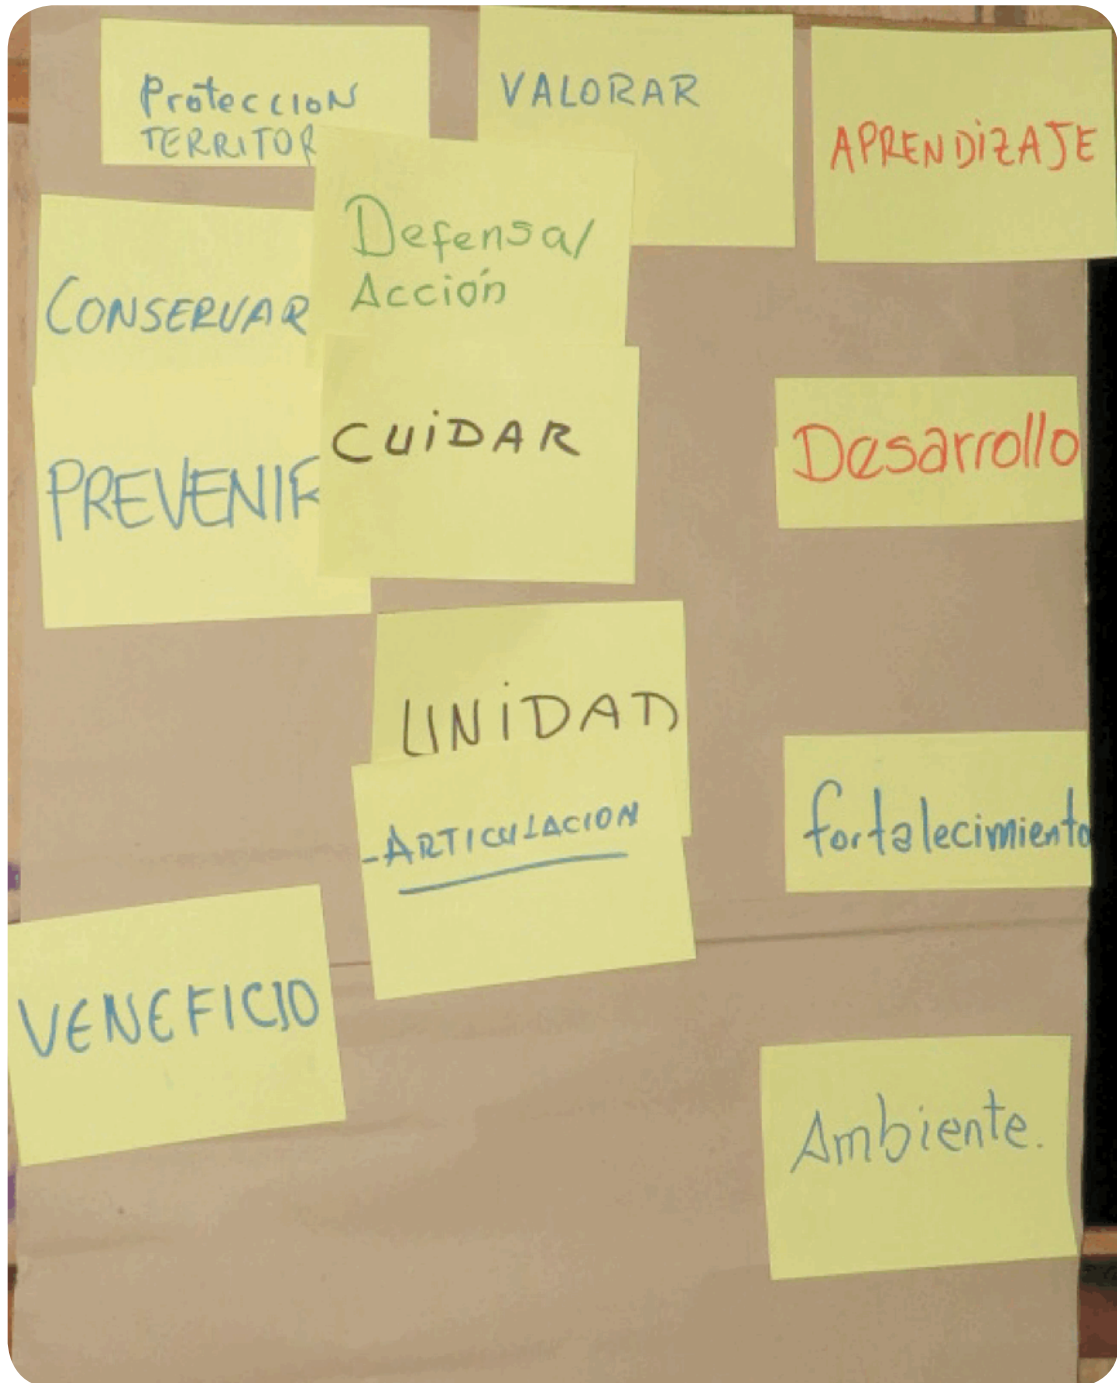 Proteccion
TERRITOR
VALORAR
APRENDIZAJE
Defensa/
Acción
CONSERVAR
CUIDAR
PREVENIR
Desarrollo
UNIDAD
-ARTICULACION
fortalecimiento
VENEFICIO
Ambiente.